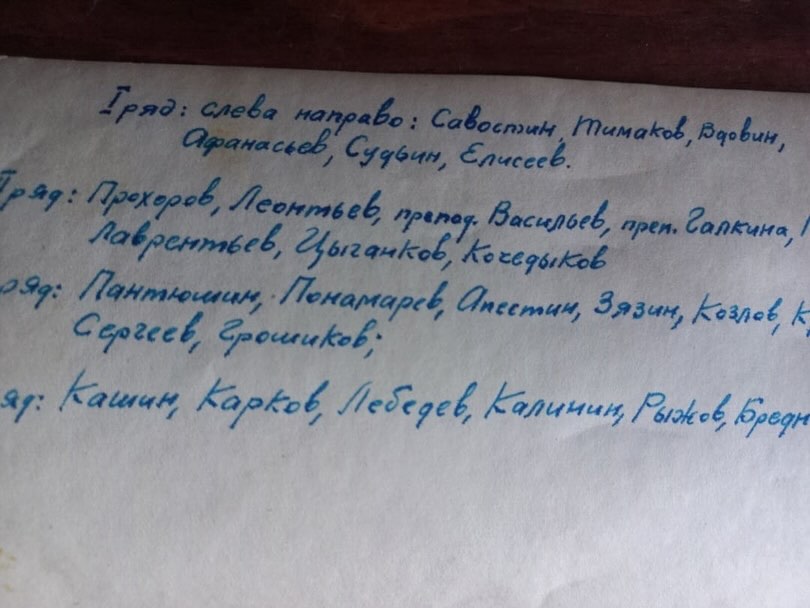 I ряд: слева направо: Савостин, Тимаков, Вдовин,
Афанасьев, Судьин, Елисеев.
ряд: Прохоров, Леонтьев, препод. Васильев, преп. Галкина,
Лаврентьев, Цыганков, Кочедыков
ряд: Пантюшин, Понамарев, Апестин, Зязин, Козлов,
Сергеев, Грошиков;
яд: Кашин, Карков, Лебедев, Калинин, Рыжов, Бредн